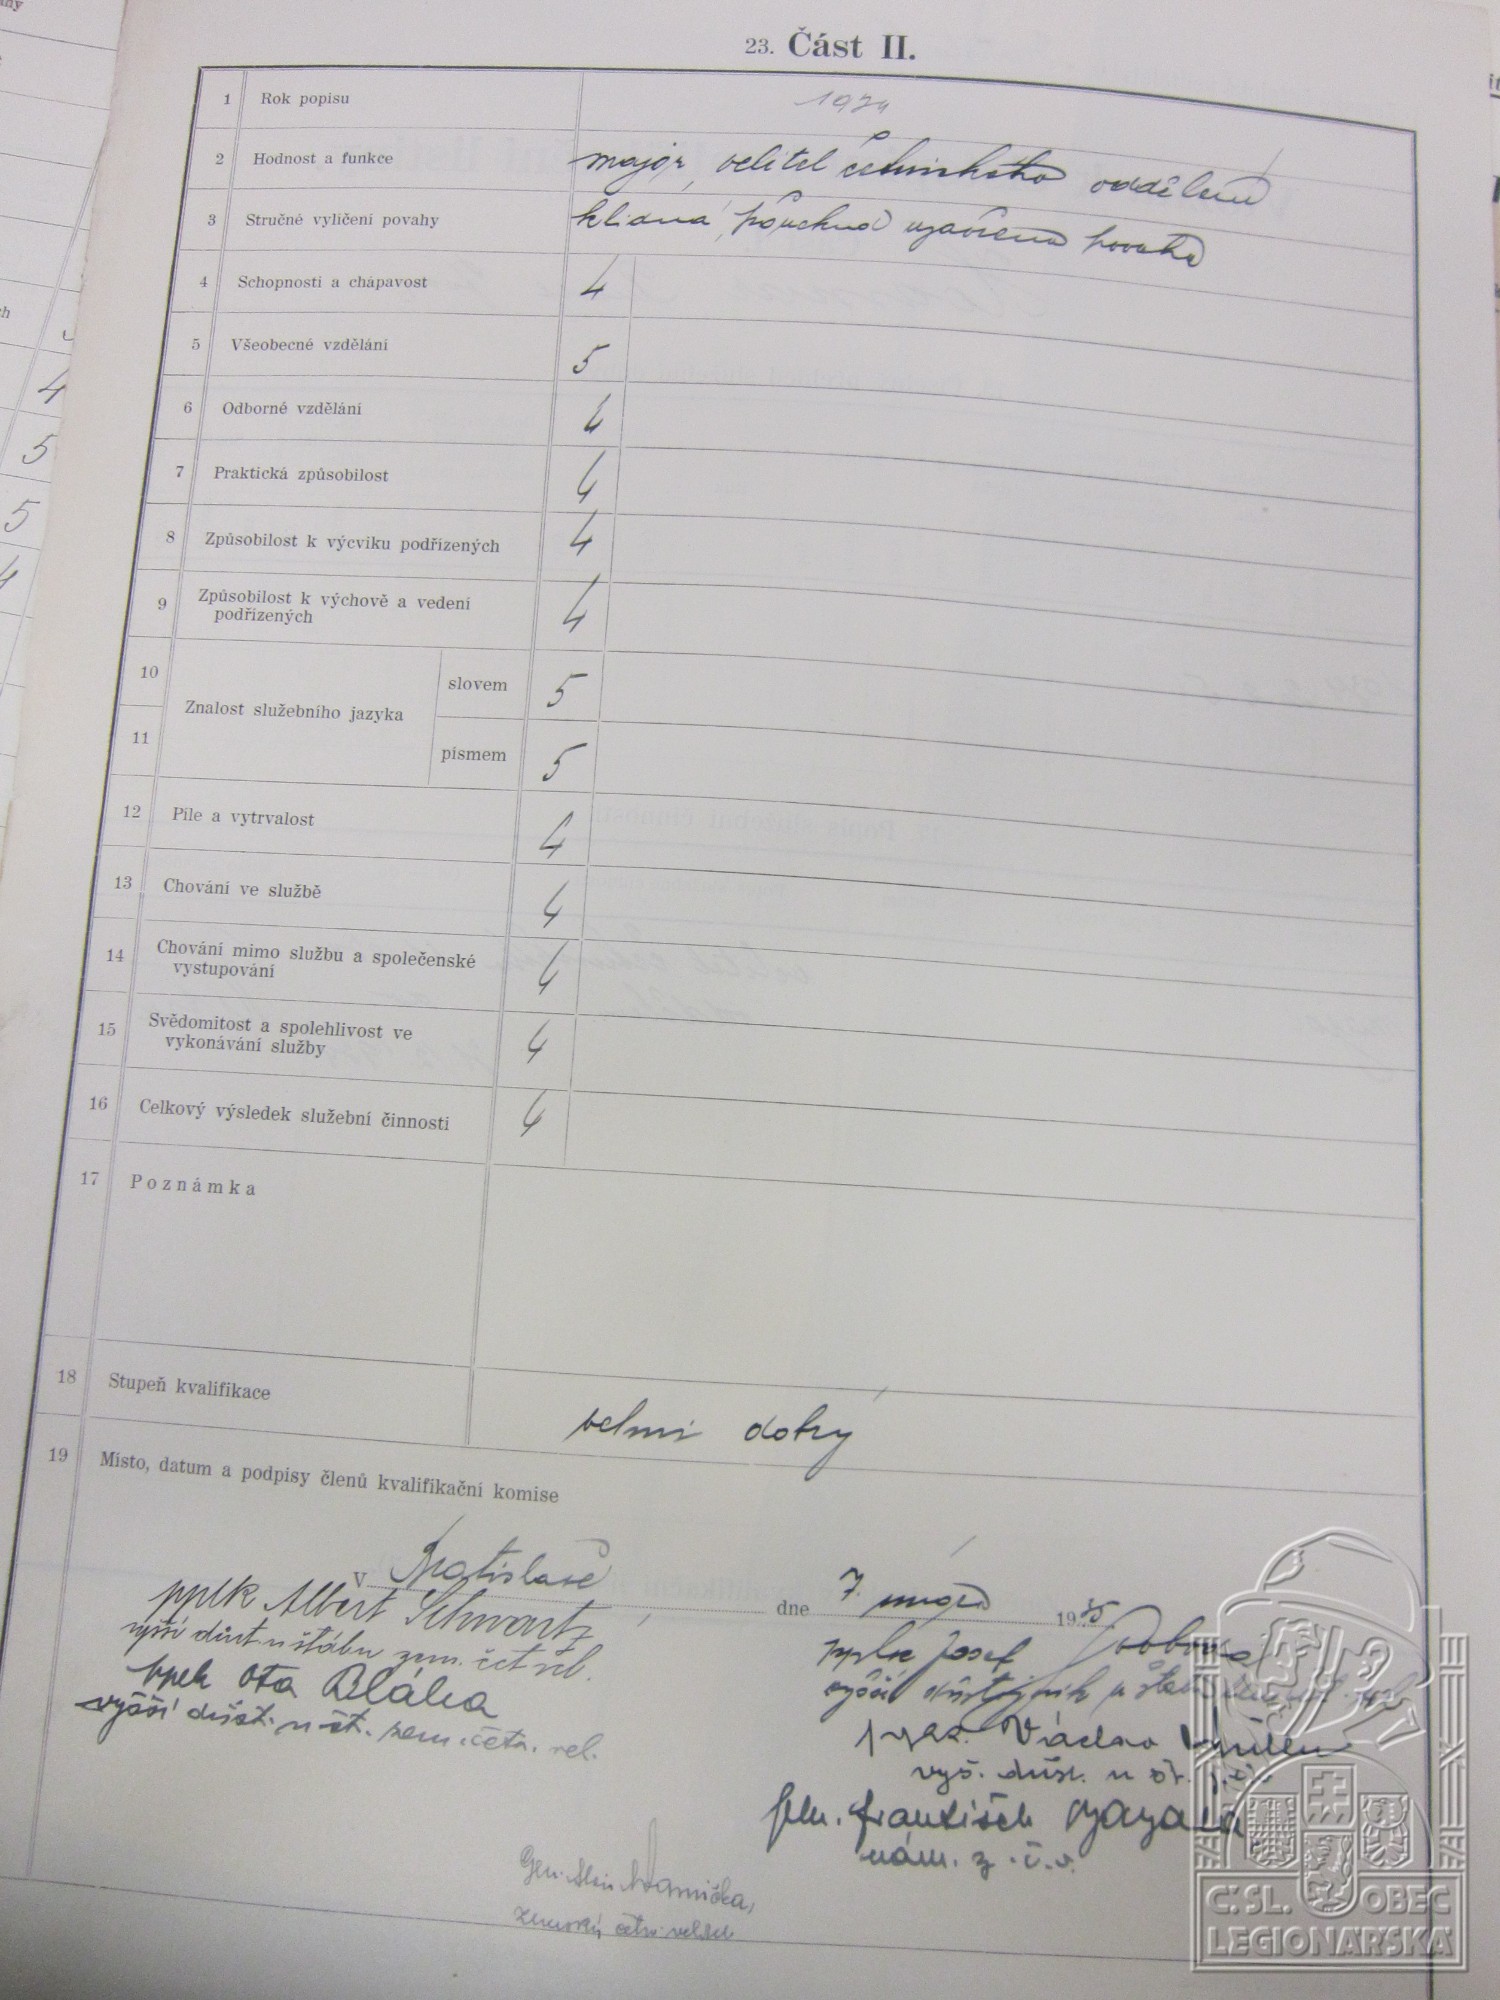 23. Část II.
1 Rok popisu 1934
2 Hodnost a funkce major, velitel četnického oddělení
3 Stručné vylíčení povahy klidná, poněkud uzavřená povaha
4 Schopnosti a chápavost 4
5 Všeobecné vzdělání 5
6 Odborné vzdělání 4
7 Praktická způsobilost 4
8 Způsobilost k výcviku podřízených 4
9 Způsobilost k výchově a vedení
podřízených 4
10 Znalost služebního jazyka slovem 5
11 písmem 5
12 Píle a vytrvalost 4
13 Chování ve službě 4
14 Chování mimo službu a společenské
vystupování 4
15 Svědomitost a spolehlivost ve
vykonávání služby 4
16 Celkový výsledek služební činnosti 4
17 Poznámka
18 Stupeň kvalifikace velmi dobrý
19 Místo, datum a podpisy členů kvalifikační komise
V Bratislavě dne 7. února 1935
pplk Albert Schwartz
vyšší důst. u štábu zem. čet. vel.
pplk Ota Bláha
vyšší důst. u št. zem. četn. vel.
pplk Josef
vyšší důstojník u
Václav
vyš. důst. u št.
František
nám. z. č. v.
Gen.
zemský četn. velitel
ČSL. OBEC
LEGIONÁŘSKÁ